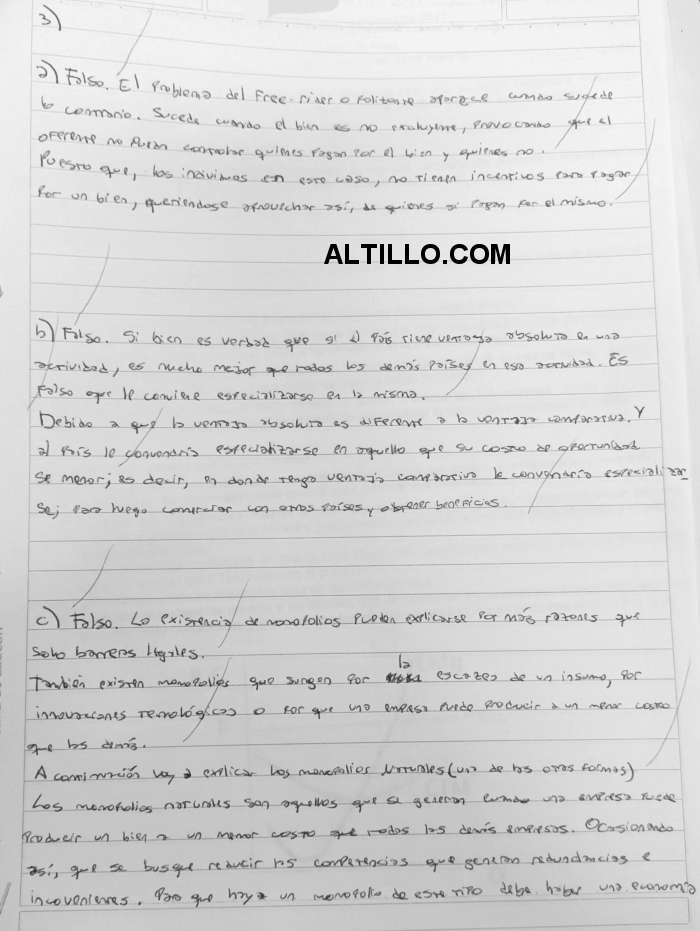 3)
a) Falso. El problema del Free-rider o Polizonte aparece cuando sucede
lo contrario. Sucede cuando el bien es no excluyente, provocando que el
oferente no puedan controlar quienes pagan por el bien y quienes no.
Puesto que, los individuos en este caso, no tienen incentivos para pagar
por un bien, queriendose aprovechar así, de quienes si pagan por el mismo.
ALTILLO.COM
b) Falso. Si bien es verdad que si el País tiene ventaja absoluta en una
actividad, es mucho mejor que todos los demás países en esa actividad. Es
Falso que le conviene especializarse en la misma.
Debido a que la ventaja absoluta es diferente a la ventaja comparativa. Y
al País le convendría especializarse en aquello que su costo de oportunidad
se menor; es decir, en donde tenga ventaja comparativa le convendría especializar
se; para luego comerciar con otros países y obtener beneficios.
c) Falso. La existencia de monopolios pueden explicarse por más razones que
solo barreras legales.
También existen monopolios que surgen por la escazes de un insumo, por
innovaciones tecnológicas o por que una empresa puede producir a un menor costo
que los demás.
A continuación voy a explicar los monopolios Naturales (una de las otras formas)
Los monopolios naturales son aquellos que se generan cuando una empresa puede
producir un bien a un menor costo que todas las demás empresas. Ocasionando
así, que se busque reducir las competencias que generan redundancias e
incovenientes. Para que haya un monopolio de este tipo debe haber una economía